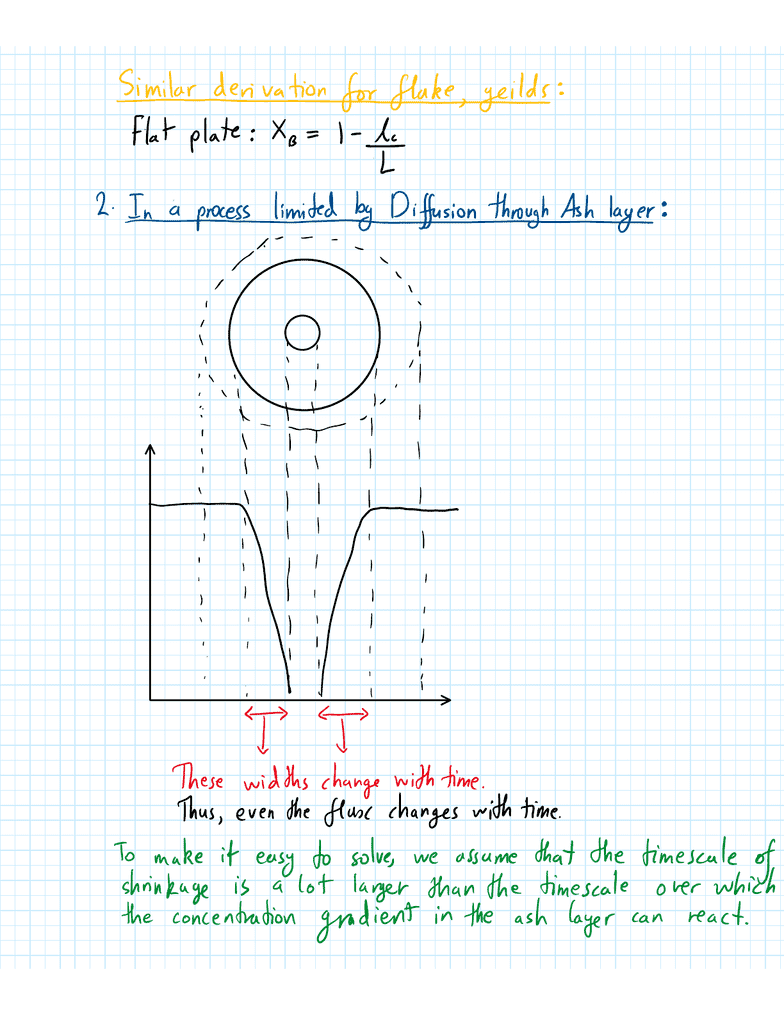 Similar derivation for flake, yeilds:
Flat plate: X_B = 1 - l_c/L
2. In a process limited by Diffusion through Ash layer:
These widths change with time.
Thus, even the flux changes with time.
To make it easy to solve, we assume that the timescale of
shrinkage is a lot larger than the timescale over which
the concentration gradient in the ash layer can react.